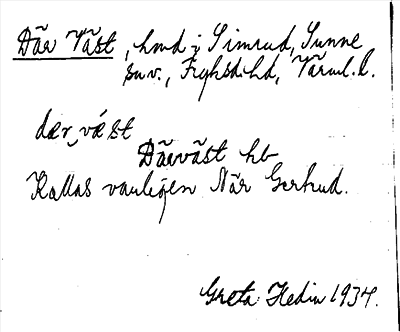 Där Väst, hmd i Simrud, Sunne
sn v., Fryksd. hd, Värml. l.
dær, vǽst
Därväst hb
Kallas vanligen När Gertrud.
Greta Hedin 1934.